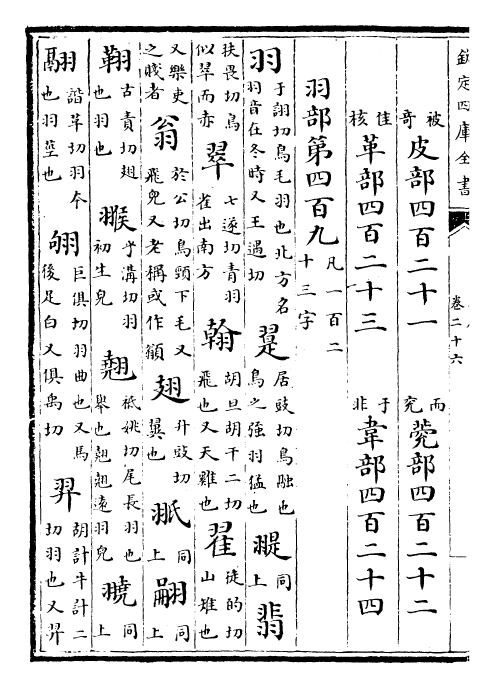 欽定四庫全書 卷二十六
被奇 皮部四百二十一 而兖 㼱部四百二十二
佳核 革部四百二十三 于非 韋部四百二十四
羽部第四百九 凡一百二十三字
羽 于詡切鳥毛羽也北方名羽音在冬時又王遇切 翨 居豉切鳥融也鳥之強羽猛也 䎀 同上 翡
扶畏切鳥似翠而赤 翠 七遂切青羽雀出南方 翰 胡旦胡干二切飛也又天雞也 翟 徒的切山雉也
又樂吏之賤者 翁 於公切鳥頸下毛又飛皃又老稱或作 翅 升豉切翼也 同上 翤 同上
古責切翅也羽也 翭 乎溝切羽初生皃 翹 祗姚切尾長羽也舉也翹翹遠羽皃 同上
翮 諧革切羽本也羽莖也 翑 巨俱切羽曲也又馬後足白又俱禹切 羿 胡計牛計二切羽也又羿